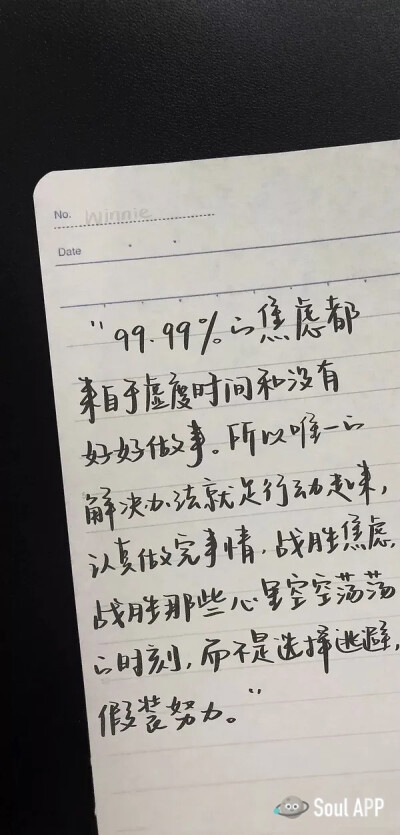 No. Winnie
Date
"99.99%的焦虑都
来自于虚度时间和没有
好好做事。所以唯一的
解决办法就是行动起来,
认真做完事情,战胜焦虑,
战胜那些心里空空荡荡
的时刻,而不是选择逃避,
假装努力。"
Soul APP